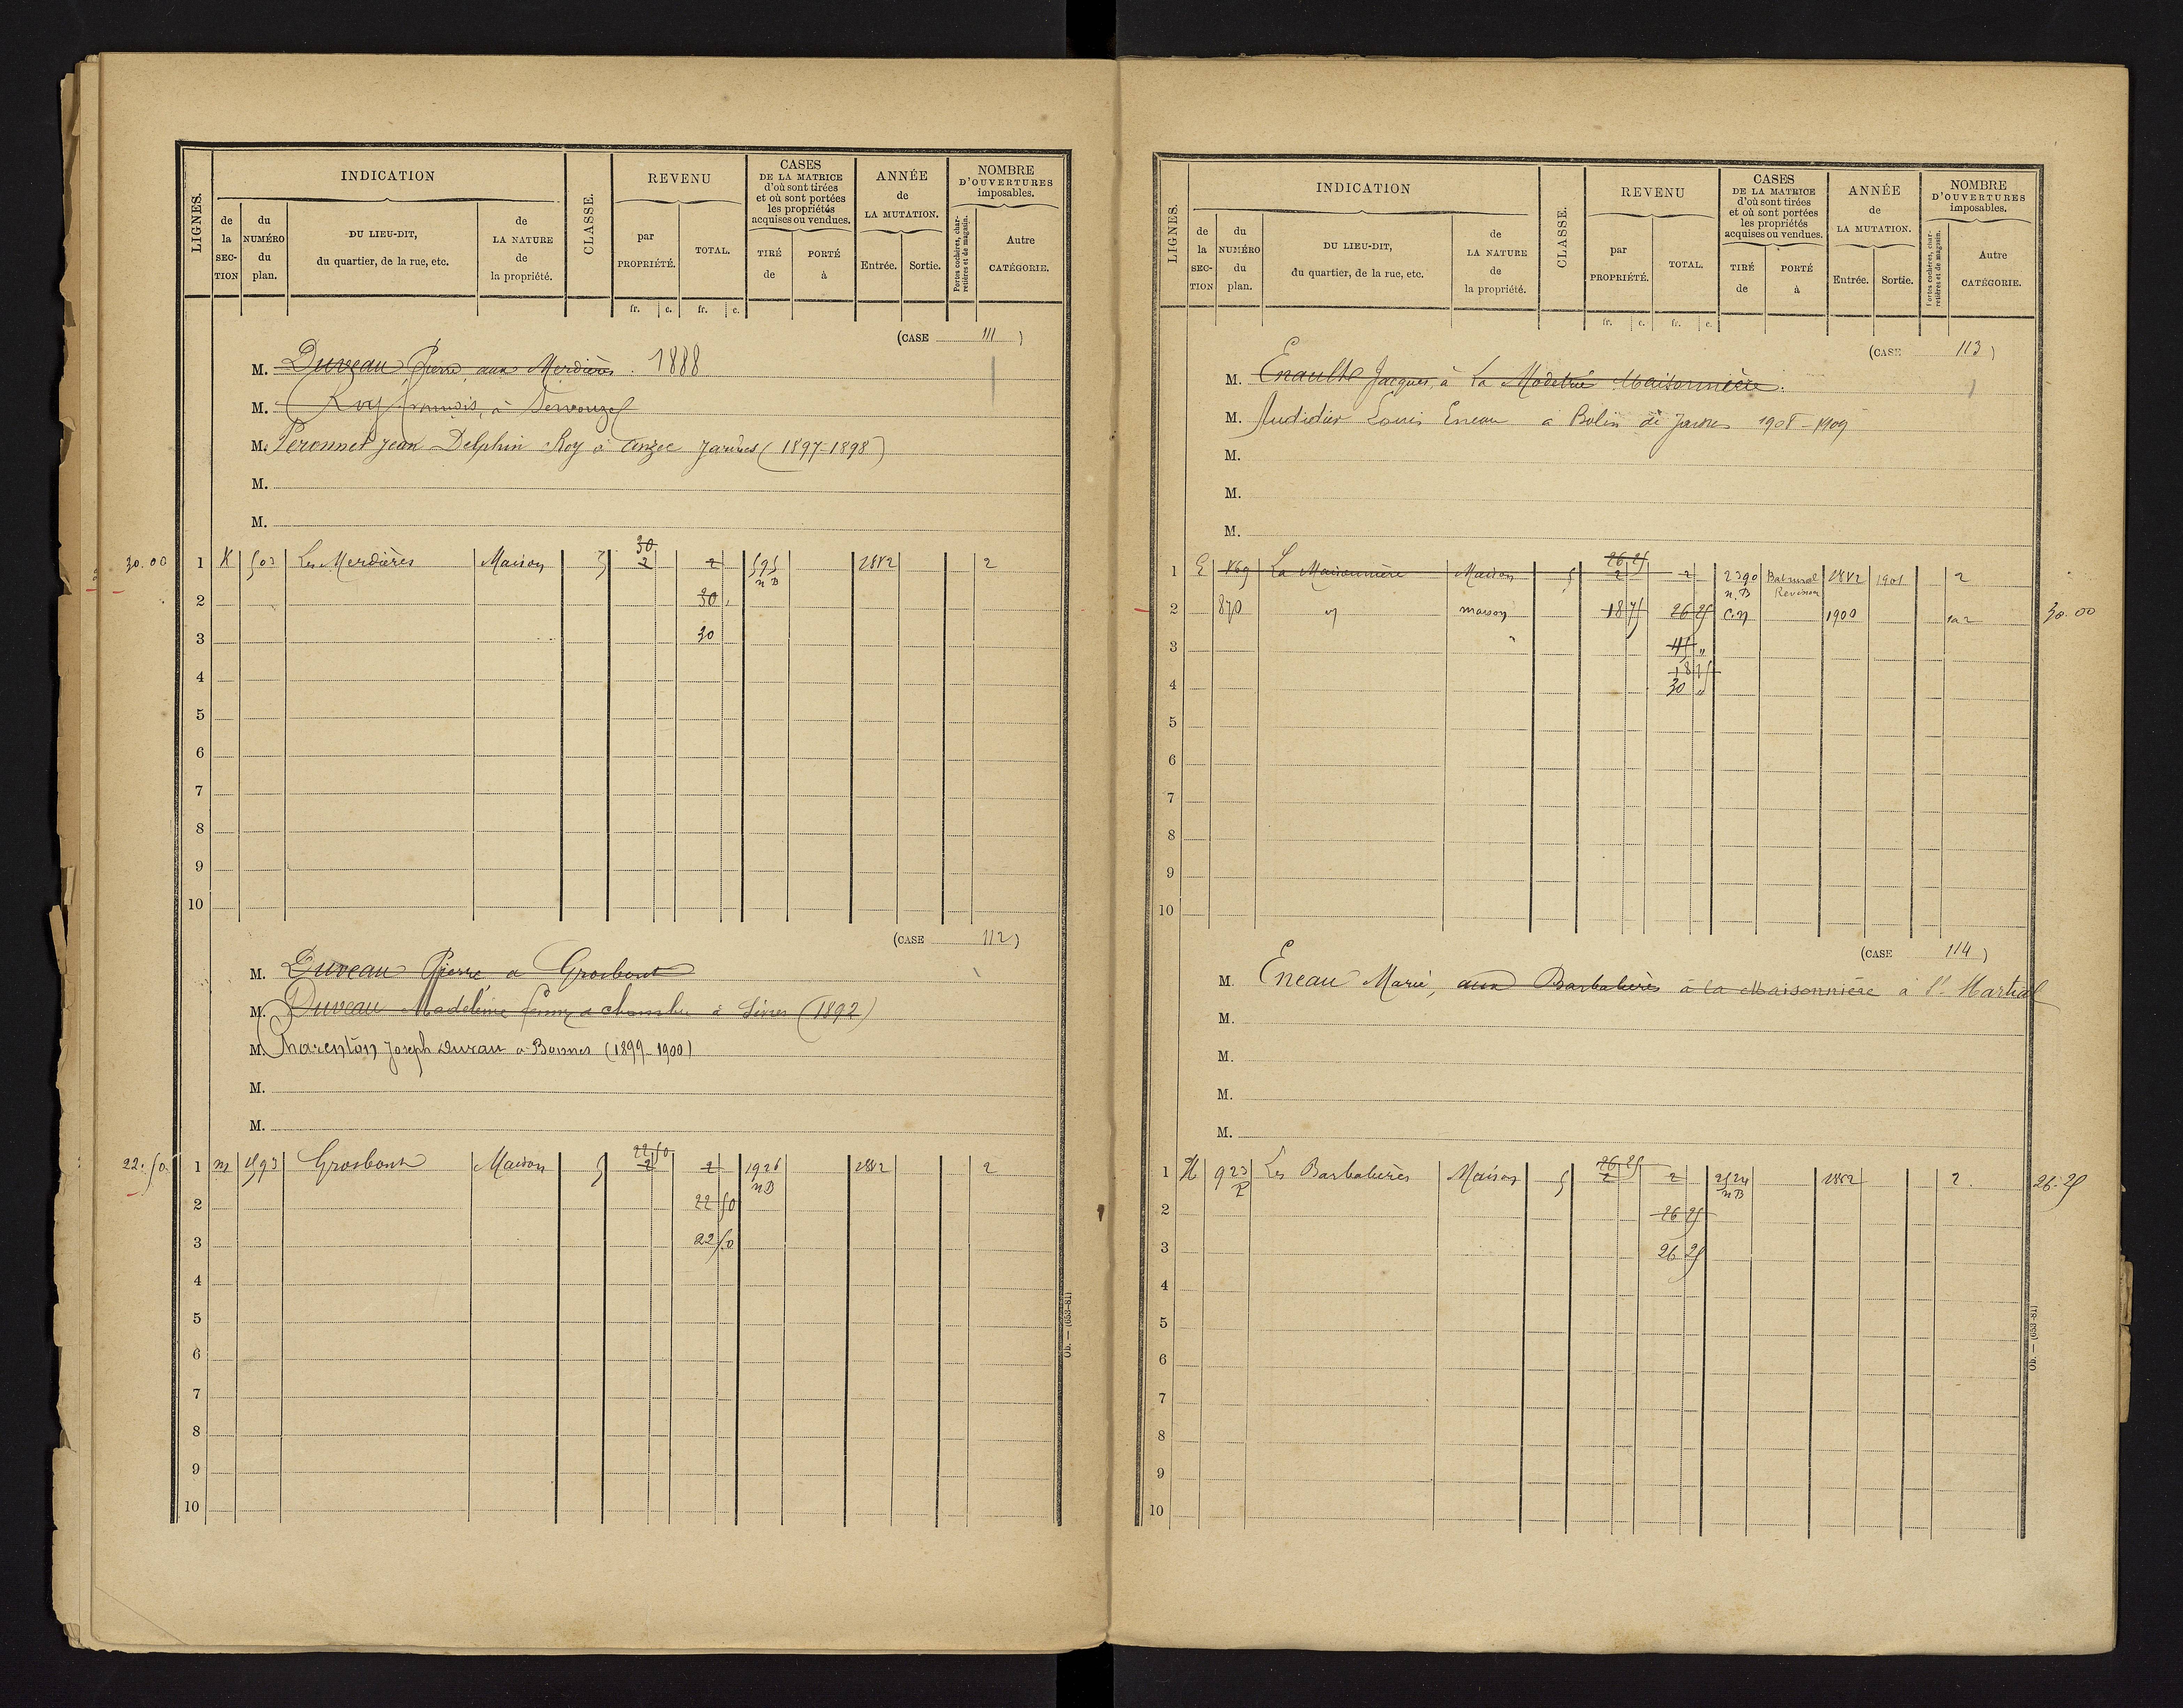 LIGNES. INDICATION CLASSE. REVENU CASES DE LA MATRICE d'où sont tirées et où sont portées les propriétés acquises ou vendues. ANNÉE de LA MUTATION. NOMBRE D'OUVERTURES imposables.
de la SECTION du NUMÉRO du plan. DU LIEU-DIT, du quartier, de la rue, etc. de LA NATURE de la propriété. par PROPRIÉTÉ. TOTAL. TIRÉ de PORTÉ à Entrée. Sortie. Portes cochères, charretières et de magasin. Autre CATÉGORIE.
fr. c. fr. c.
(CASE 111)
M. Duveau Pierre, aux Merdières. 1888
M. Roy François, à
M. Peronnet Jean Delphin Roy à Anzec Jarires (1897-1898)
M.
M.
30
30.00 1 K 503 Les Merdières Maison 5 2 2 595 1882 2
n B
2 30
3 30
4
5
6
7
8
9
10
(CASE 112)
M. Duveau Pierre a Grosbout
M. Duveau Madeleine à Sivres (1892)
M. Charenton Joseph Duveau a Bonnes (1899-1900)
M.
M.
22 50
22.50 1 m 593 Grosbout Maison 5 2 2 1926 1882 2
n B
2 22 50
3 22 50
4
5
6
7
8
9
10
Ob. — (653-81)
LIGNES. INDICATION CLASSE. REVENU CASES DE LA MATRICE d'où sont tirées et où sont portées les propriétés acquises ou vendues. ANNÉE de LA MUTATION. NOMBRE D'OUVERTURES imposables.
de la SECTION du NUMÉRO du plan. DU LIEU-DIT, du quartier, de la rue, etc. de LA NATURE de la propriété. par PROPRIÉTÉ. TOTAL. TIRÉ de PORTÉ à Entrée. Sortie. Portes cochères, charretières et de magasin. Autre CATÉGORIE.
fr. c. fr. c.
(CASE 113)
M. Enault Jacques, à La Maisonnière.
M. Louis Eneau a Bolin 1908-1909
M.
M.
M.
26 25
1 E 869 La Maisonnière Maison 5 2 2 2390 1882 1901 2
n. B Revision
2 870 maison 18 75 26 25 C.N 1900 2 30.00
3 45
18 75
4 30
5
6
7
8
9
10
(CASE 114)
M. Eneau Marie, aux Barbalières à la Maisonnière à St Martial
M.
M.
M.
M.
26 25
1 H 923 Les Barbalières Maison 5 2 2 2524 1882 2. 26.25
P n B
2 26 25
3 26 25
4
5
6
7
8
9
10
Ob. — (653-81)